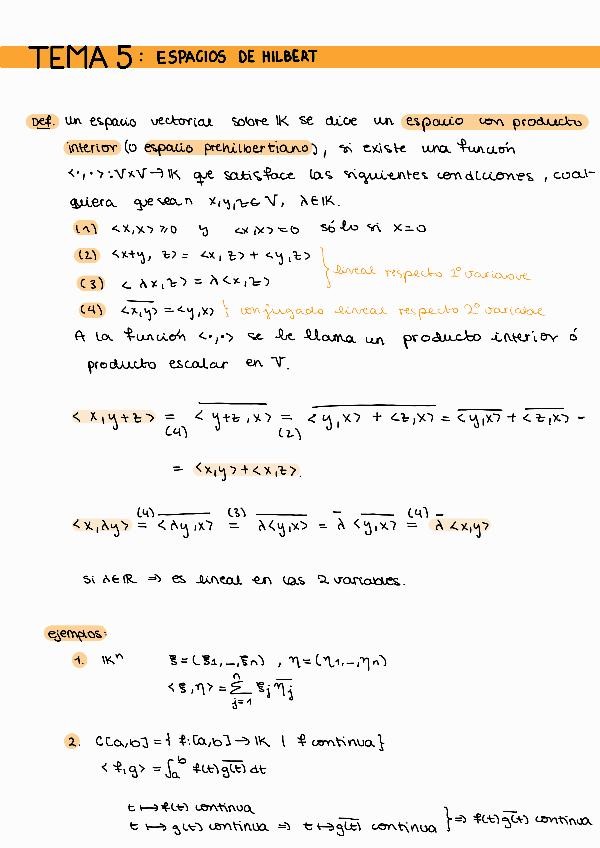 TEMA 5: ESPACIOS DE HILBERT
Def. Un espacio vectorial sobre IK se dice un espacio con producto
interior (o espacio prehilbertiano), si existe una función
<·,·>:V×V→IK que satisface las siguientes condiciones, cual-
quiera que sean x,y,z∈V, λ∈IK.
(1) <x,x> ≥0 y <x,x>=0 sólo si x=0
(2) <x+y, z> = <x,z> + <y,z>
(3) <λx,z> = λ<x,z> } lineal respecto 1º variable
(4) <x,y>̅ = <y,x> } conjugado lineal respecto 2º variable
A la función <·,·> se le llama un producto interior ó
producto escalar en V.
<x,y+z> =(4) \overline{<y+z,x>} =(2) \overline{<y,x> + <z,x>} = \overline{<y,x>} + \overline{<z,x>} =
= <x,y>+<x,z>.
<x,λy> =(4) \overline{<λy,x>} =(3) \overline{λ<y,x>} = \overline{λ} \overline{<y,x>} =(4) \overline{λ} <x,y>
si λ∈IR ⇒ es lineal en las 2 variables.
ejemplos:
1. IKⁿ ξ=(ξ1,...,ξn) , η=(η1,...,ηn)
<ξ,η> = \sum_{j=1}^{n} ξj \overline{ηj}
2. C[a,b] = { f:[a,b]→IK | f continua}
<f,g> = ∫_a^b f(t) \overline{g(t)} dt
t ↦ f(t) continua
t ↦ g(t) continua ⇒ t↦\overline{g(t)} continua } ⇒ f(t)\overline{g(t)} continua